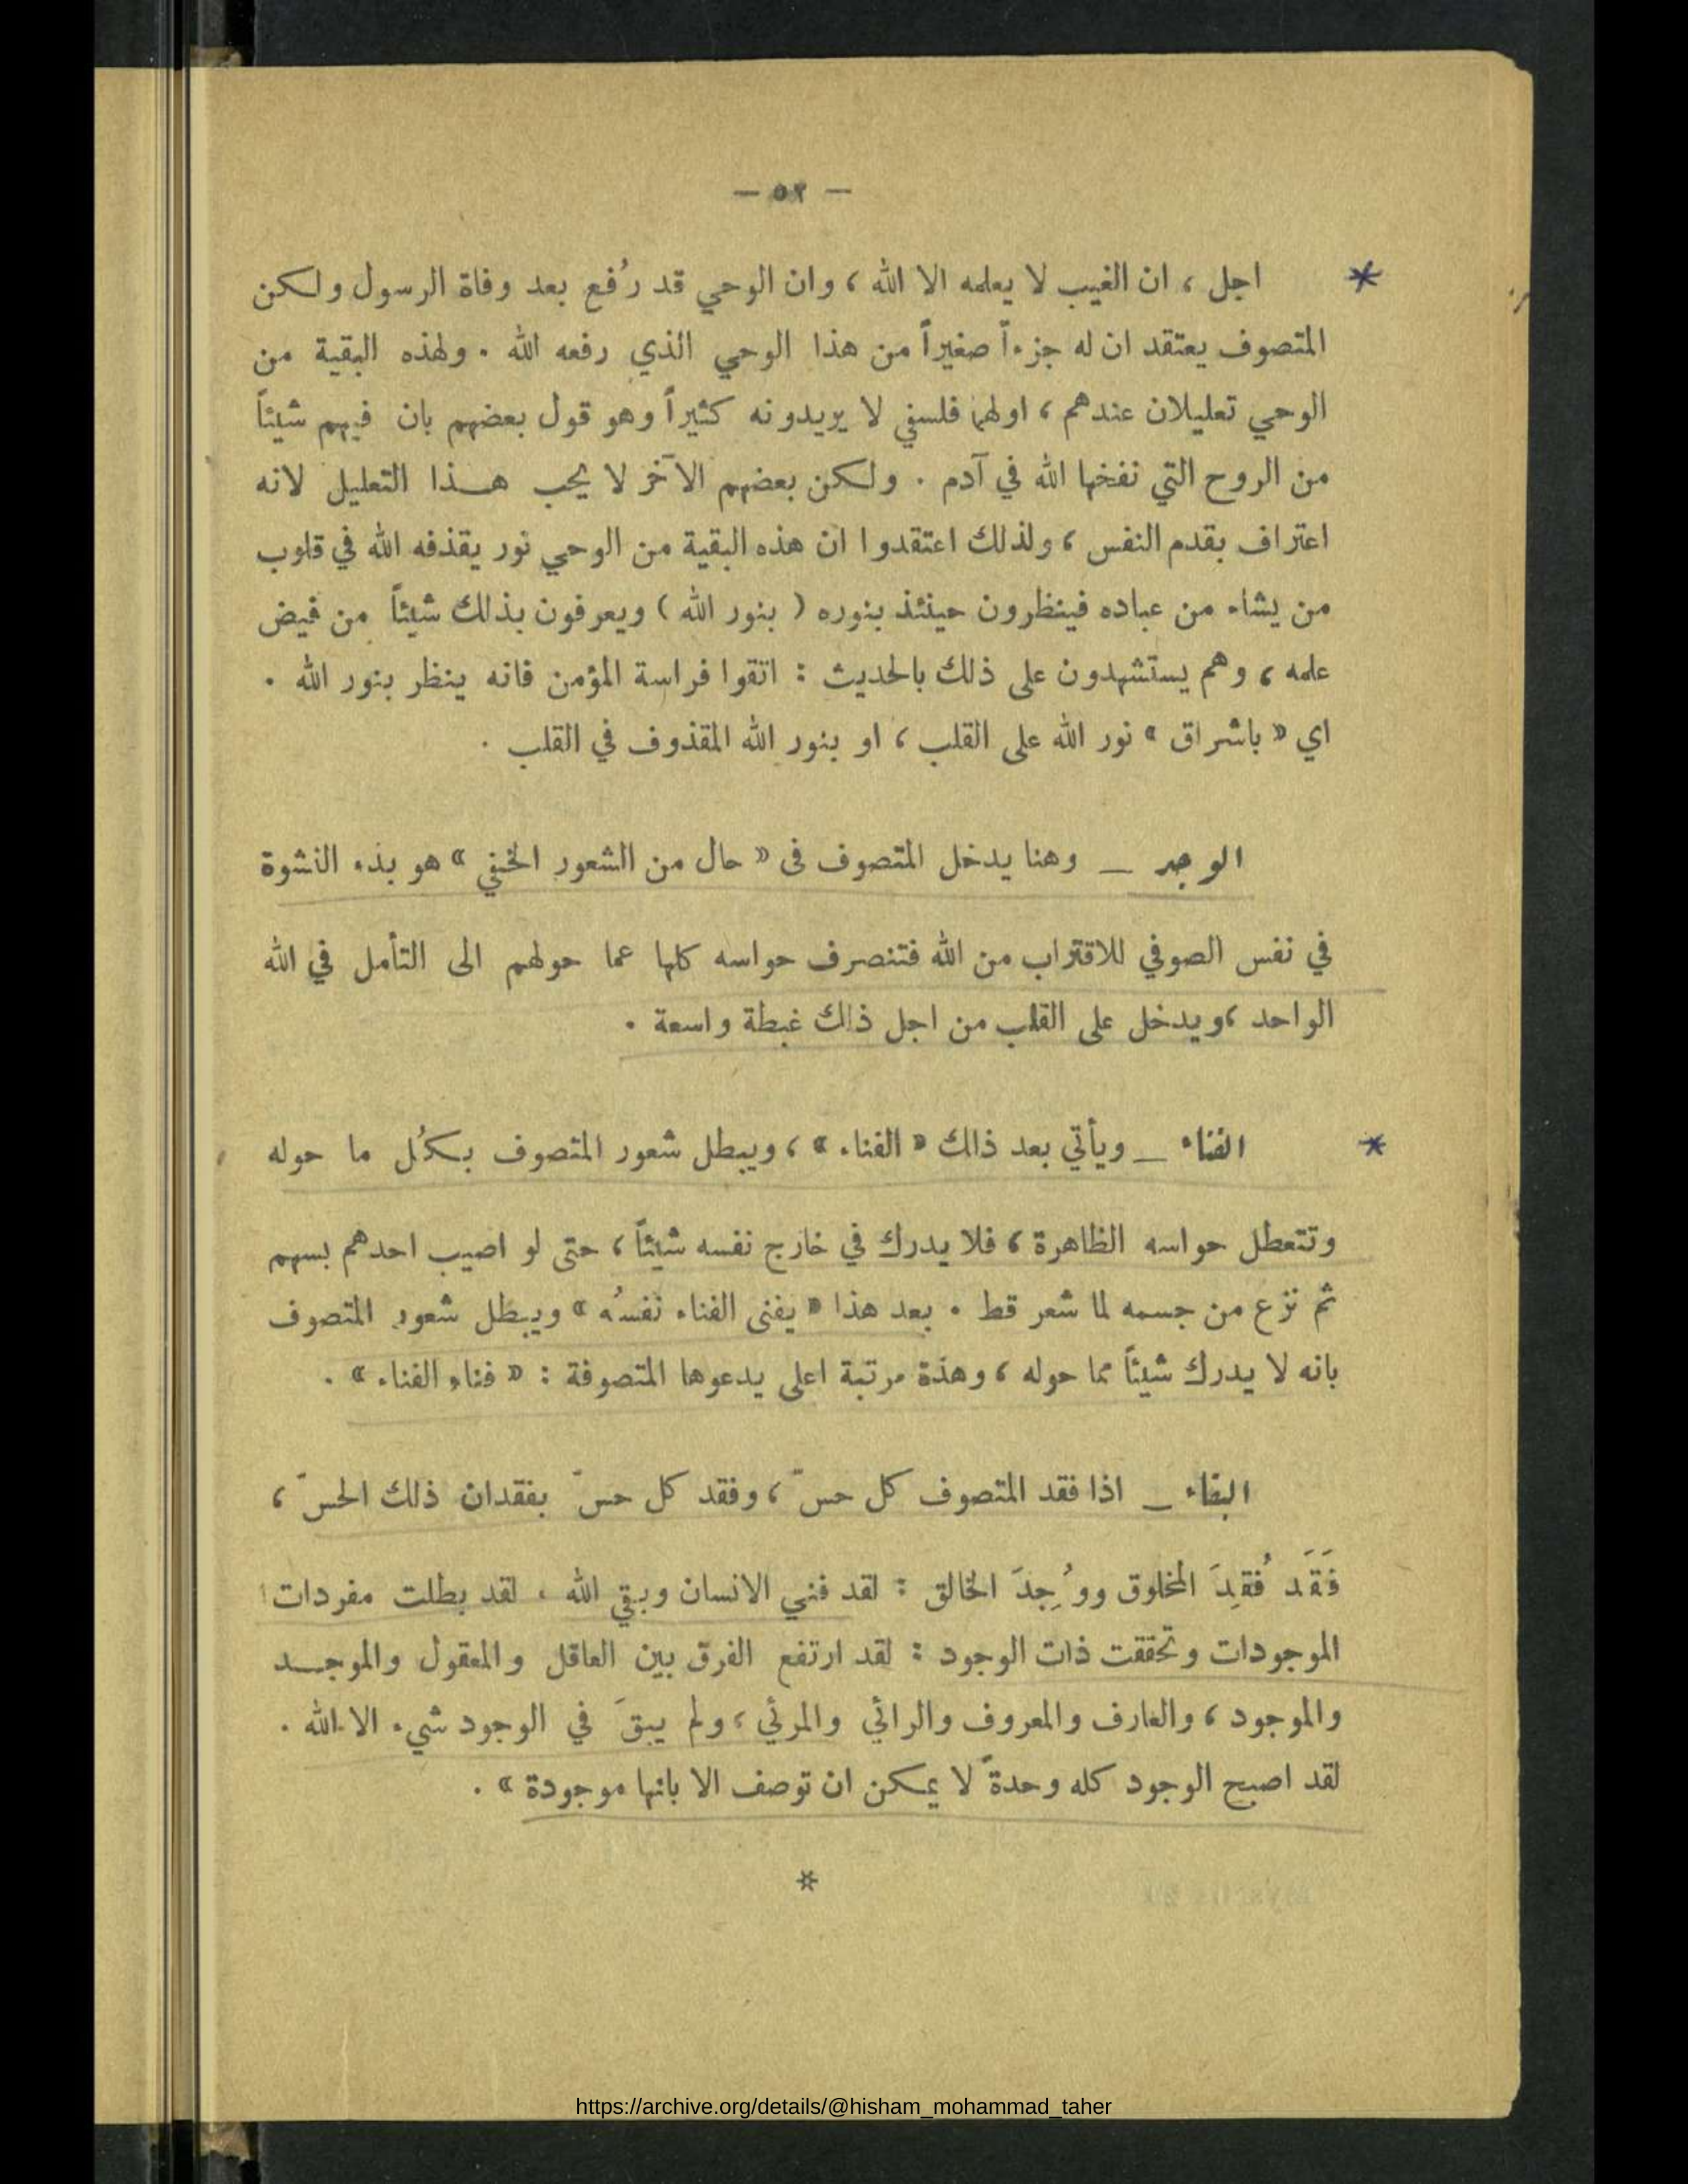 — ٥٢ —
اجل ، ان الغيب لا يعلمه الا الله ، وان الوحي قد رُفع بعد وفاة الرسول ولكن
المتصوف يعتقد ان له جزءاً صغيراً من هذا الوحي الذي رفعه الله . ولهذه البقية من
الوحي تعليلان عندهم ، اولهما فلسفي لا يريدونه كثيراً وهو قول بعضهم بان فيهم شيئاً
من الروح التي نفخها الله في آدم . ولكن بعضهم الآخر لا يحب هذا التعليل لانه
اعتراف بقدم النفس ، ولذلك اعتقدوا ان هذه البقية من الوحي نور يقذفه الله في قلوب
من يشاء من عباده فينظرون حينئذ بنوره ( بنور الله ) ويعرفون بذلك شيئاً من فيض
علمه ، وهم يستشهدون على ذلك بالحديث : اتقوا فراسة المؤمن فانه ينظر بنور الله .
اي « باشراق » نور الله على القلب ، او بنور الله المقذوف في القلب .
الوجد — وهنا يدخل المتصوف في « حال من الشعور الخفي » هو بدء النشوة
في نفس الصوفي للاقتراب من الله فتنصرف حواسه كلها عما حولهم الى التأمل في الله
الواحد ، ويدخل على القلب من اجل ذلك غبطة واسعة .
الفناء — ويأتي بعد ذلك « الفناء » ، ويبطل شعور المتصوف بكُل ما حوله
وتتعطل حواسه الظاهرة ، فلا يدرك في خارج نفسه شيئاً ، حتى لو اصيب احدهم بسهم
ثم نزع من جسمه لما شعر قط . بعد هذا « يفنى الفناء نفسُه » ويبطل شعور المتصوف
بانه لا يدرك شيئاً مما حوله ، وهذة مرتبة اعلى يدعوها المتصوفة : « فناء الفناء » .
البقاء — اذا فقد المتصوف كل حسّ ، وفقد كل حسّ بفقدان ذلك الحسّ ،
فَقَد فُقِدَ المخلوق ووُجِدَ الخالق : لقد فني الانسان وبقي الله . لقد بطلت مفردات
الموجودات وتحققت ذات الوجود : لقد ارتفع الفرق بين العاقل والمعقول والموجد
والموجود ، والعارف والمعروف والرائي والمرئي ، ولم يبقَ في الوجود شيء الا الله .
لقد اصبح الوجود كله وحدةً لا يمكن ان توصف الا بانها موجودة » .
*
https://archive.org/details/@hisham_mohammad_taher